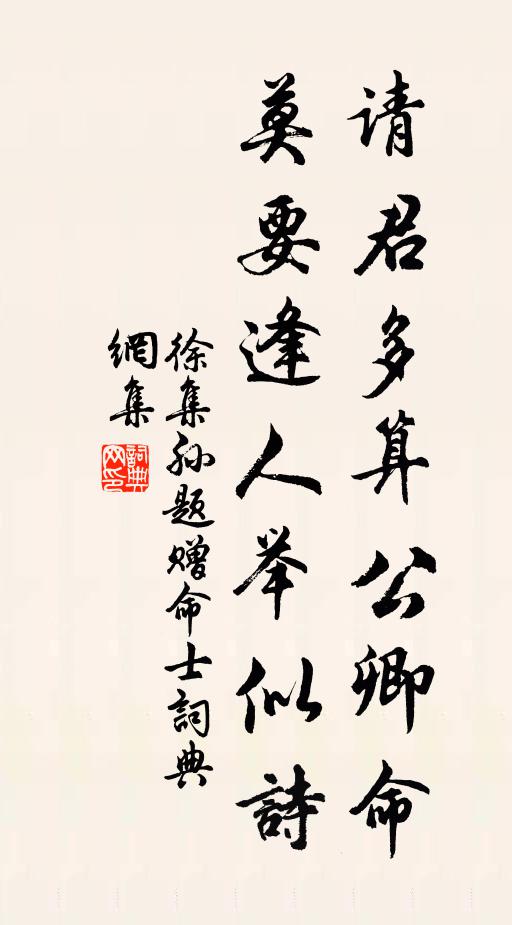 请君多算公卿命
莫要逢人举似詩
徐集孙题赠命士詞典
網集
詞典
网印